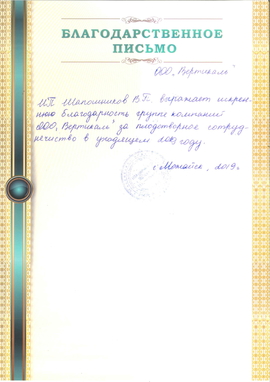 БЛАГОДАРСТВЕННОЕ
ПИСЬМО
ООО "Вертикаль"
ИП Шапошников В.Г. выражает искрен-
нюю благодарность группе компаний
ООО "Вертикаль" за плодотворное сотруд-
ничество в уходящем 2019 году.
г. Можайск, 2019г.